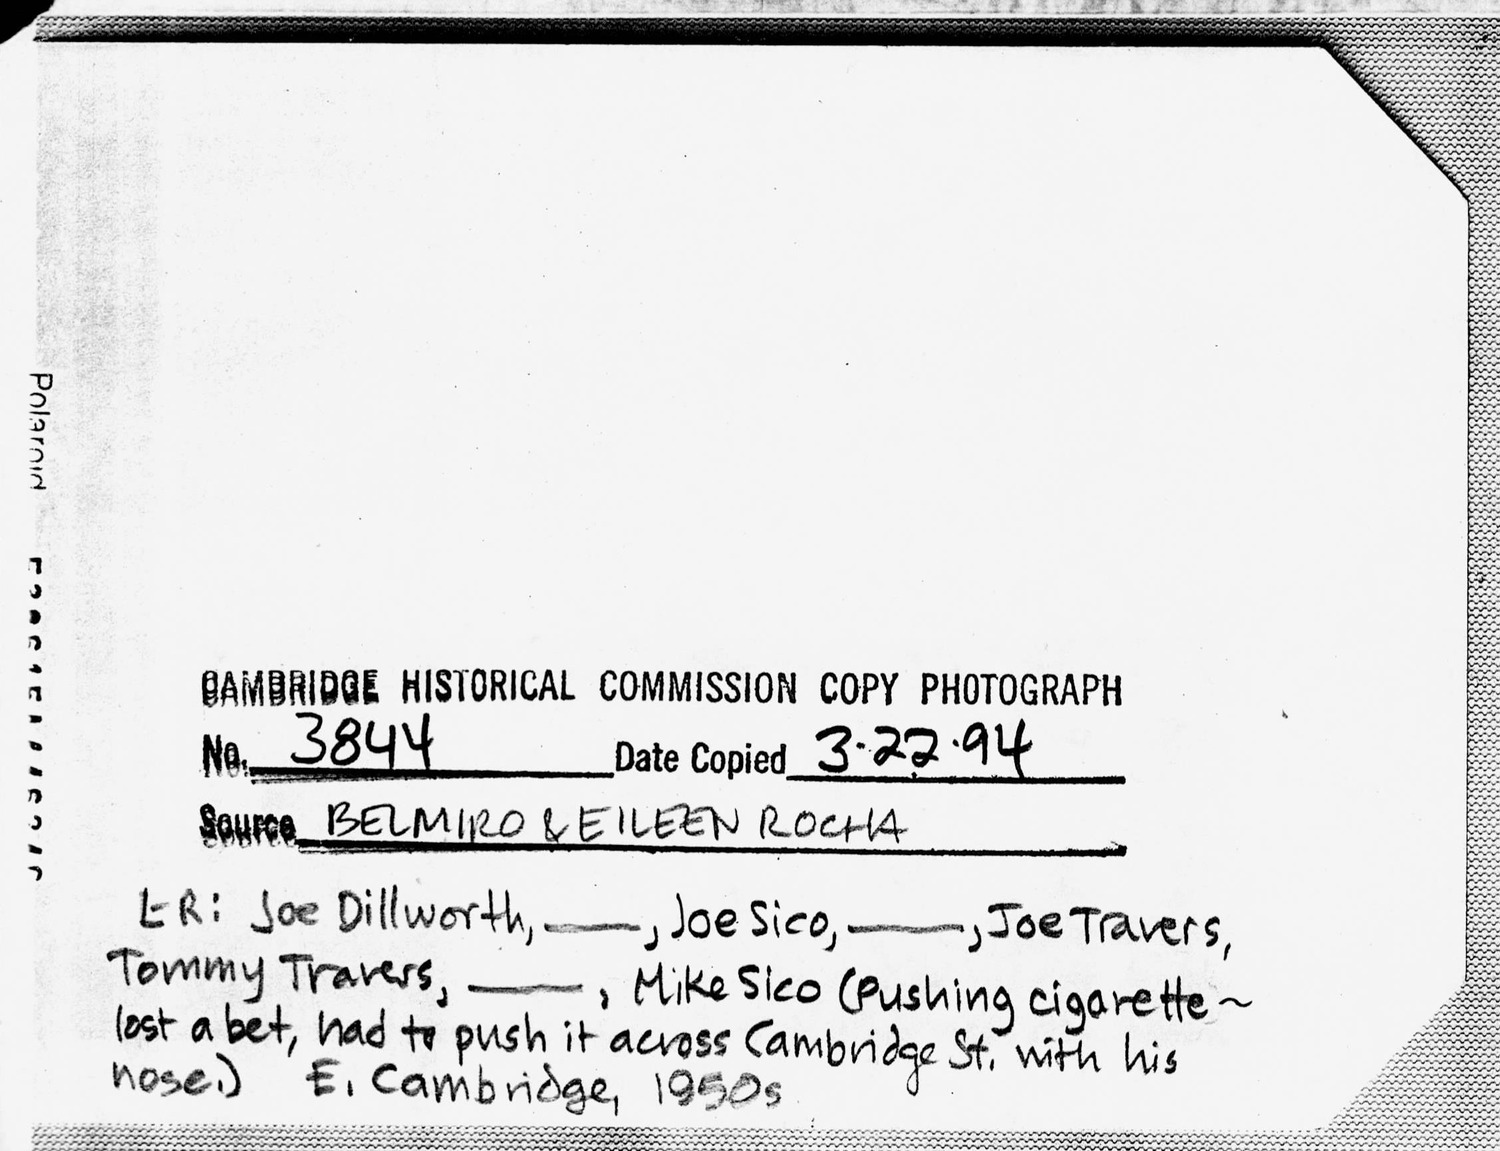 CAMBRIDGE HISTORICAL COMMISSION COPY PHOTOGRAPH
No. 3844 Date Copied 3·22·94
Source BELMIRO & EILEEN ROCHA
L-R: Joe Dillworth, ——, Joe Sico, ——, Joe Travers,
Tommy Travers, ——, Mike Sico (Pushing cigarette ~
lost a bet, had to push it across Cambridge St. with his
nose.) E. Cambridge, 1950s
Polaroid